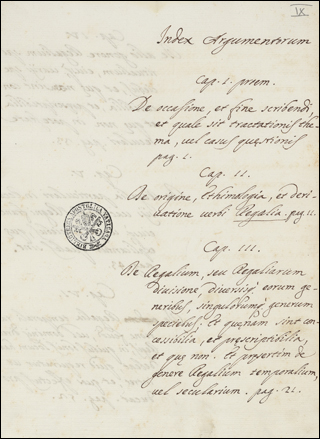 IX
Index Argumentorum
Cap. I. proem.
De occasione, et fine scribendi,
et quale sit tractationis the-
ma, vel casus quęstionis
pag. 1.
Cap. II.
De origine, Ethimologia, et deri-
vatione verbi Regalia. pag. 11.
Cap. III.
De Regalium, seu Regaliarum
divisione diversisq; eorum ge-
neribus, singulorumq; generum
speciebus; et quęnam sint con-
cessibilia, et prescriptibilia,
et quę non. Et pręsertim de
genere Regalium temporalium,
vel secularium. pag. 21.